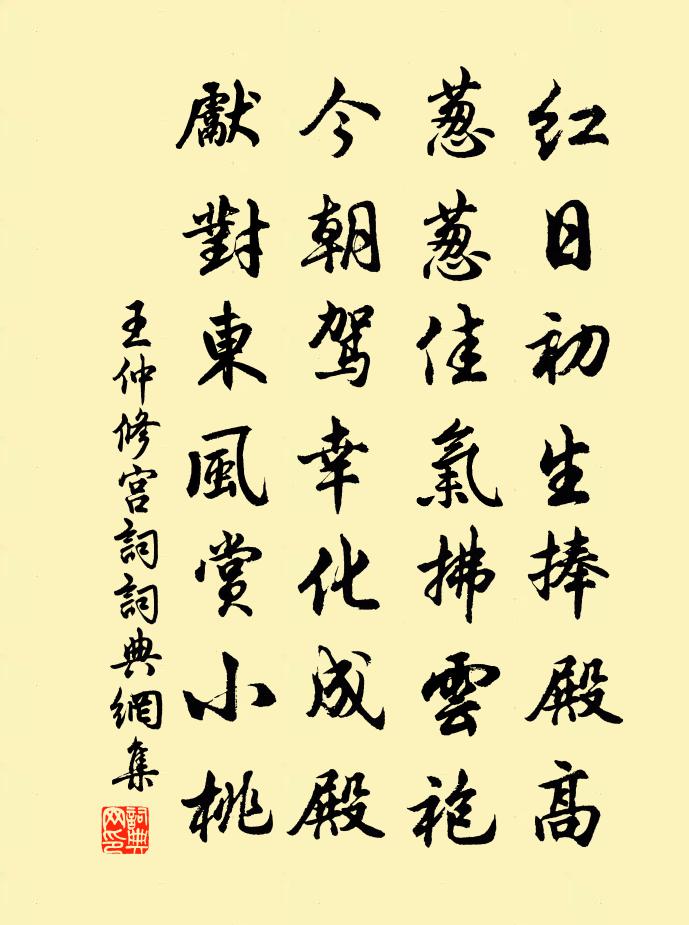 红日初生捧殿高
葱葱佳氣拂雲袍
今朝駕幸化成殿
獻對東風賞小桃
王仲修宫詞詞典網集
詞典网印